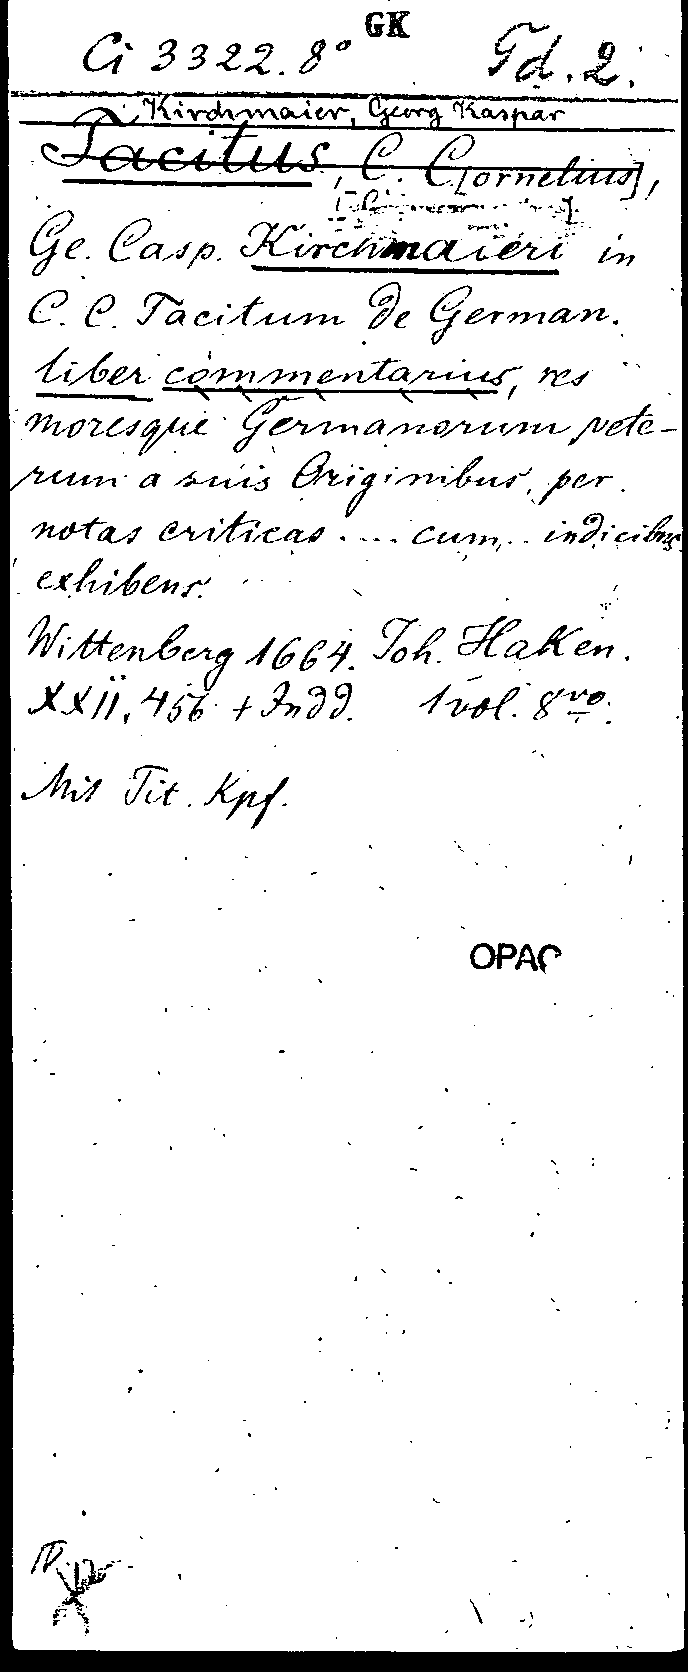 GK
Ci 3322.8° Td. 2.
Kirchmaier, Georg Kaspar
Tacitus, C. C[ornelius],
Ge. Casp. Kirchmaieri in
C. C. Tacitum de German.
liber commentarius, res
moresque Germanorum vete-
rum a suis Originibus, per
notas criticas .... cum .. indicibus
exhibens.
Wittenberg 1664. Joh. Haken.
XXII, 456 + Indd. 1 vol. 8vo.
Mit Tit. Kpf.
OPAC